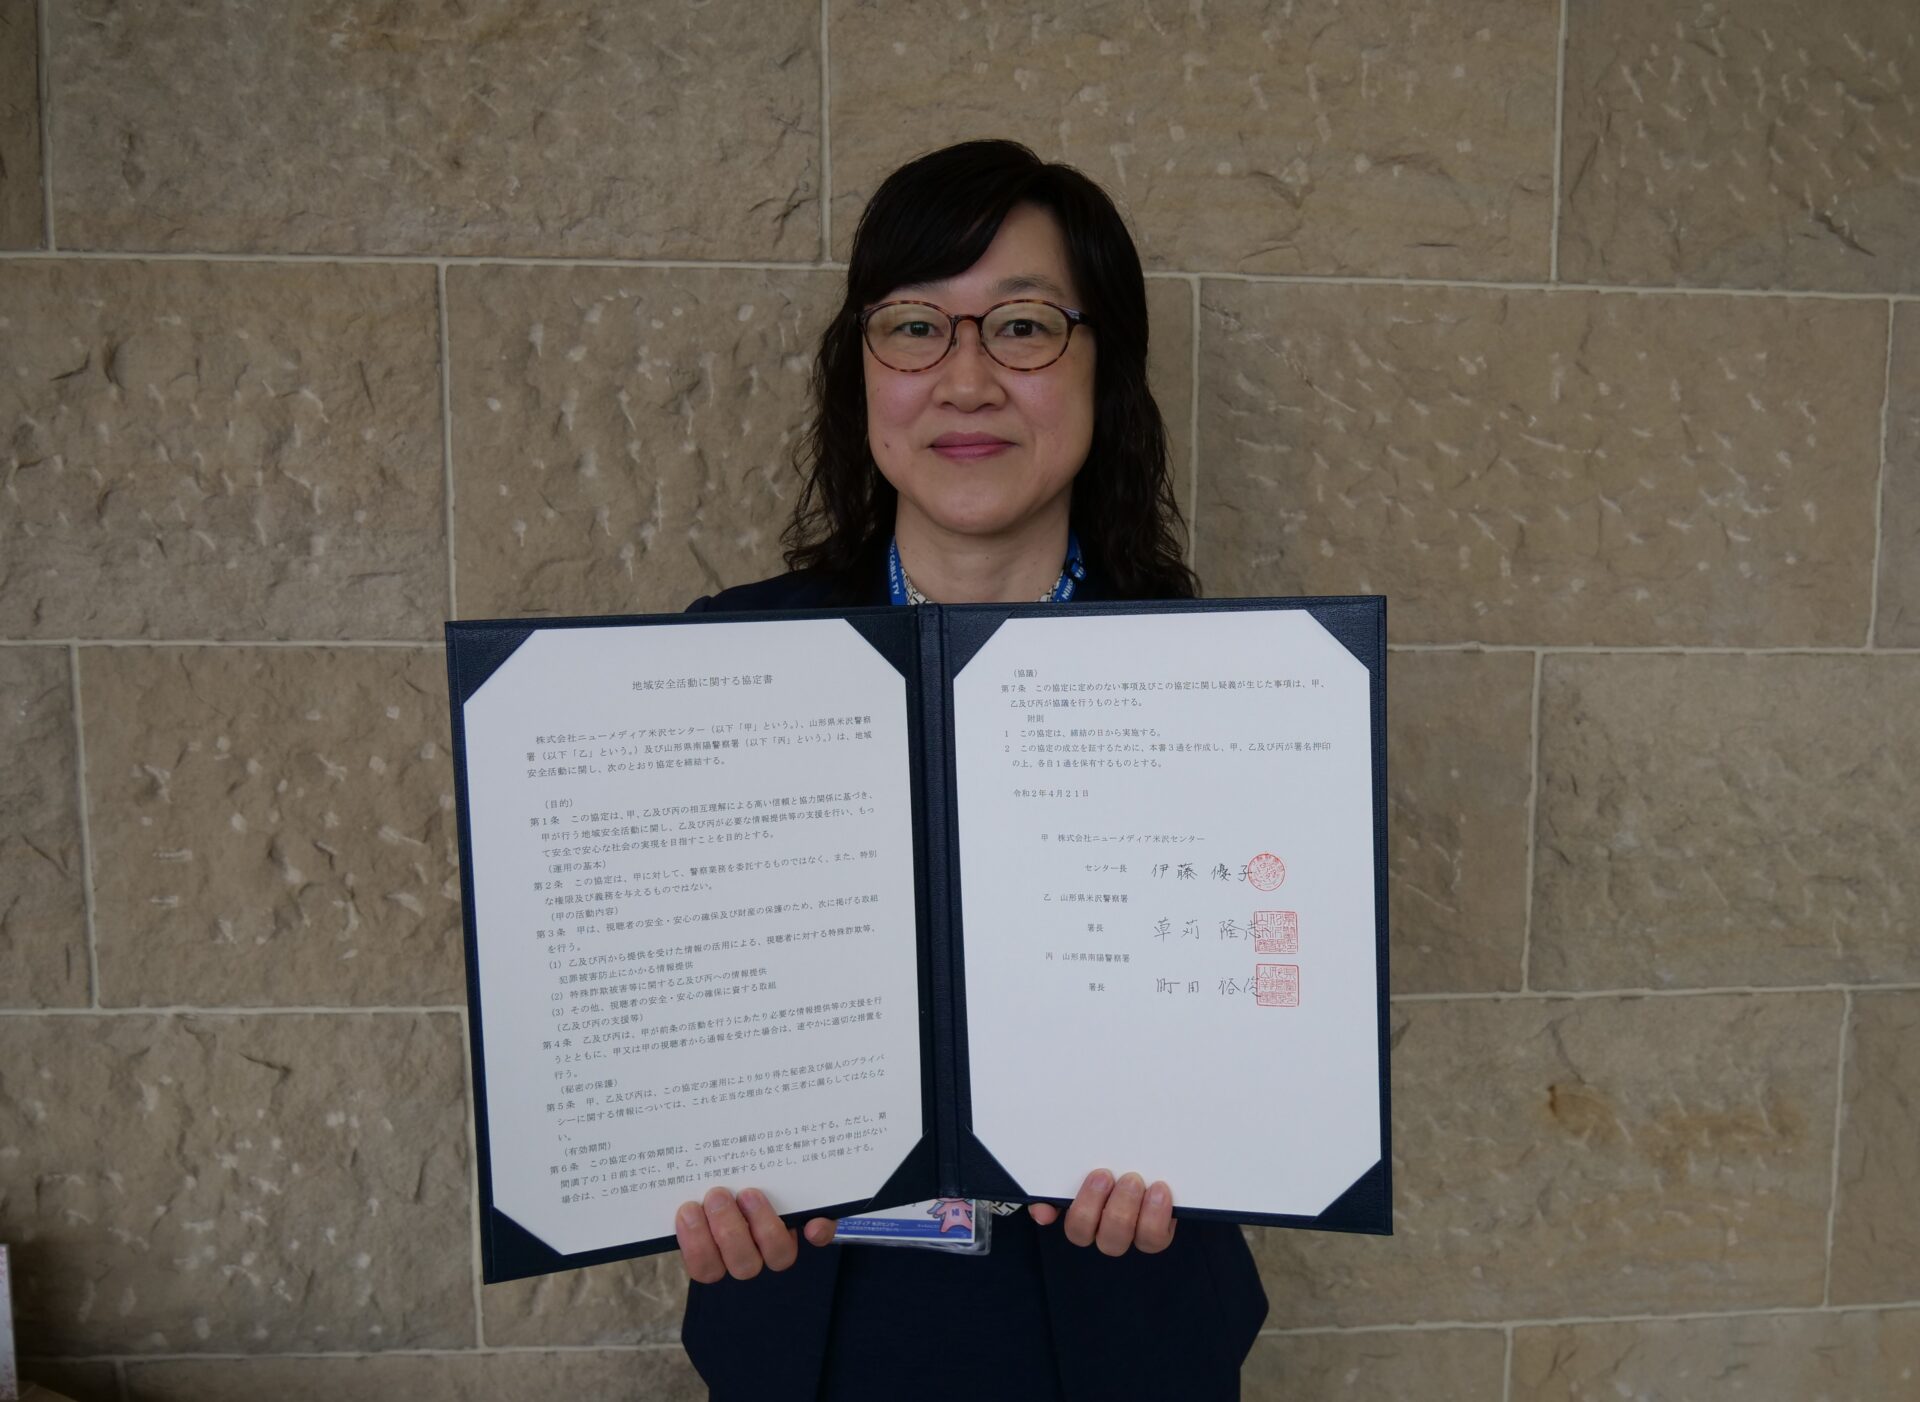 CABLE TV
NIKO
地域安全活動に関する協定書
株式会社ニューメディア米沢センター(以下「甲」という。)、山形県米沢警察
署(以下「乙」という。)及び山形県南陽警察署(以下「丙」という。)は、地域
安全活動に関し、次のとおり協定を締結する。
(目的)
第1条 この協定は、甲、乙及び丙の相互理解による高い信頼と協力関係に基づき、
甲が行う地域安全活動に関し、乙及び丙が必要な情報提供等の支援を行い、もっ
て安全で安心な社会の実現を目指すことを目的とする。
(運用の基本)
第2条 この協定は、甲に対して、警察業務を委託するものではなく、また、特別
な権限及び義務を与えるものではない。
(甲の活動内容)
第3条 甲は、視聴者の安全・安心の確保及び財産の保護のため、次に掲げる取組
を行う。
(1) 乙及び丙から提供を受けた情報の活用による、視聴者に対する特殊詐欺等、
犯罪被害防止にかかる情報提供
(2) 特殊詐欺被害等に関する乙及び丙への情報提供
(3) その他、視聴者の安全・安心の確保に資する取組
(乙及び丙の支援等)
第4条 乙及び丙は、甲が前条の活動を行うにあたり必要な情報提供等の支援を行
うとともに、甲又は甲の視聴者から通報を受けた場合は、速やかに適切な措置を
行う。
(秘密の保護)
第5条 甲、乙及び丙は、この協定の運用により知り得た秘密及び個人のプライバ
シーに関する情報については、これを正当な理由なく第三者に漏らしてはならな
い。
(有効期間)
第6条 この協定の有効期間は、この協定の締結の日から1年とする。ただし、期
間満了の1日前までに、甲、乙、丙いずれからも協定を解除する旨の申出がない
場合は、この協定の有効期間は1年間更新するものとし、以後も同様とする。
(協議)
第7条 この協定に定めのない事項及びこの協定に関し疑義が生じた事項は、甲、
乙及び丙が協議を行うものとする。
附則
1 この協定は、締結の日から実施する。
2 この協定の成立を証するために、本書3通を作成し、甲、乙及び丙が署名押印
の上、各自1通を保有するものとする。
令和2年4月21日
甲 株式会社ニューメディア米沢センター
センター長 伊藤 優子
乙 山形県米沢警察署
署長 草苅 隆志
丙 山形県南陽警察署
署長 町田 裕俊
ニューメディア 米沢センター